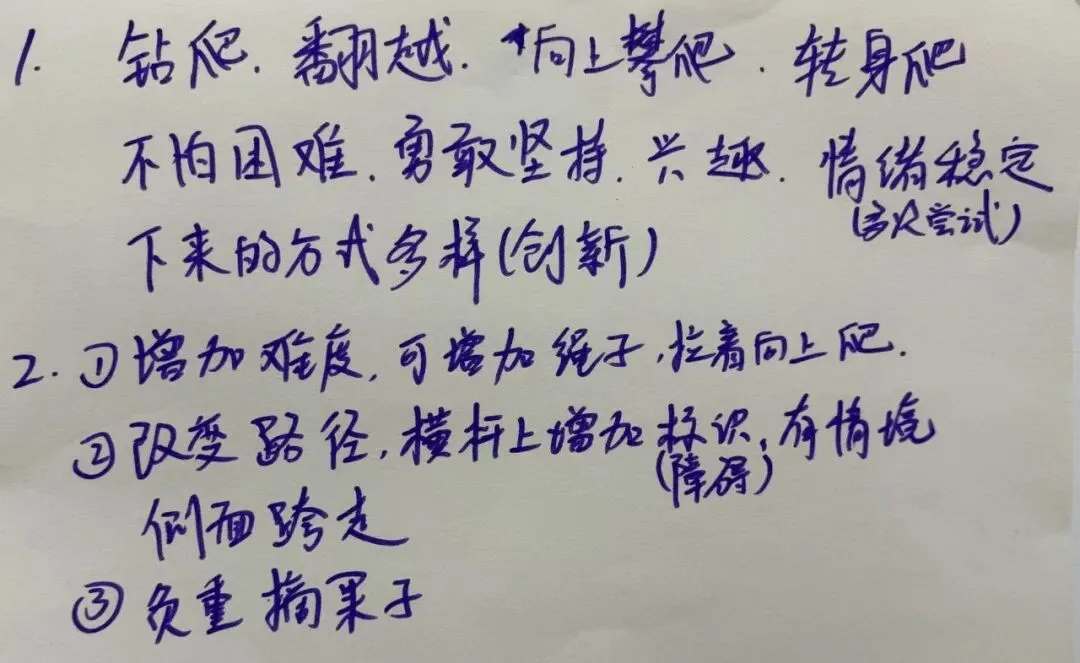 1. 钻爬、翻越、向上攀爬、转身爬
不怕困难、勇敢坚持、兴趣、情绪稳定
(多次尝试)
下来的方式多样(创新)
2. ①增加难度,可增加绳子,拉着向上爬.
②改变路径,横杆上增加标识,有情境
(障碍)
侧面跨走
③负重摘果子